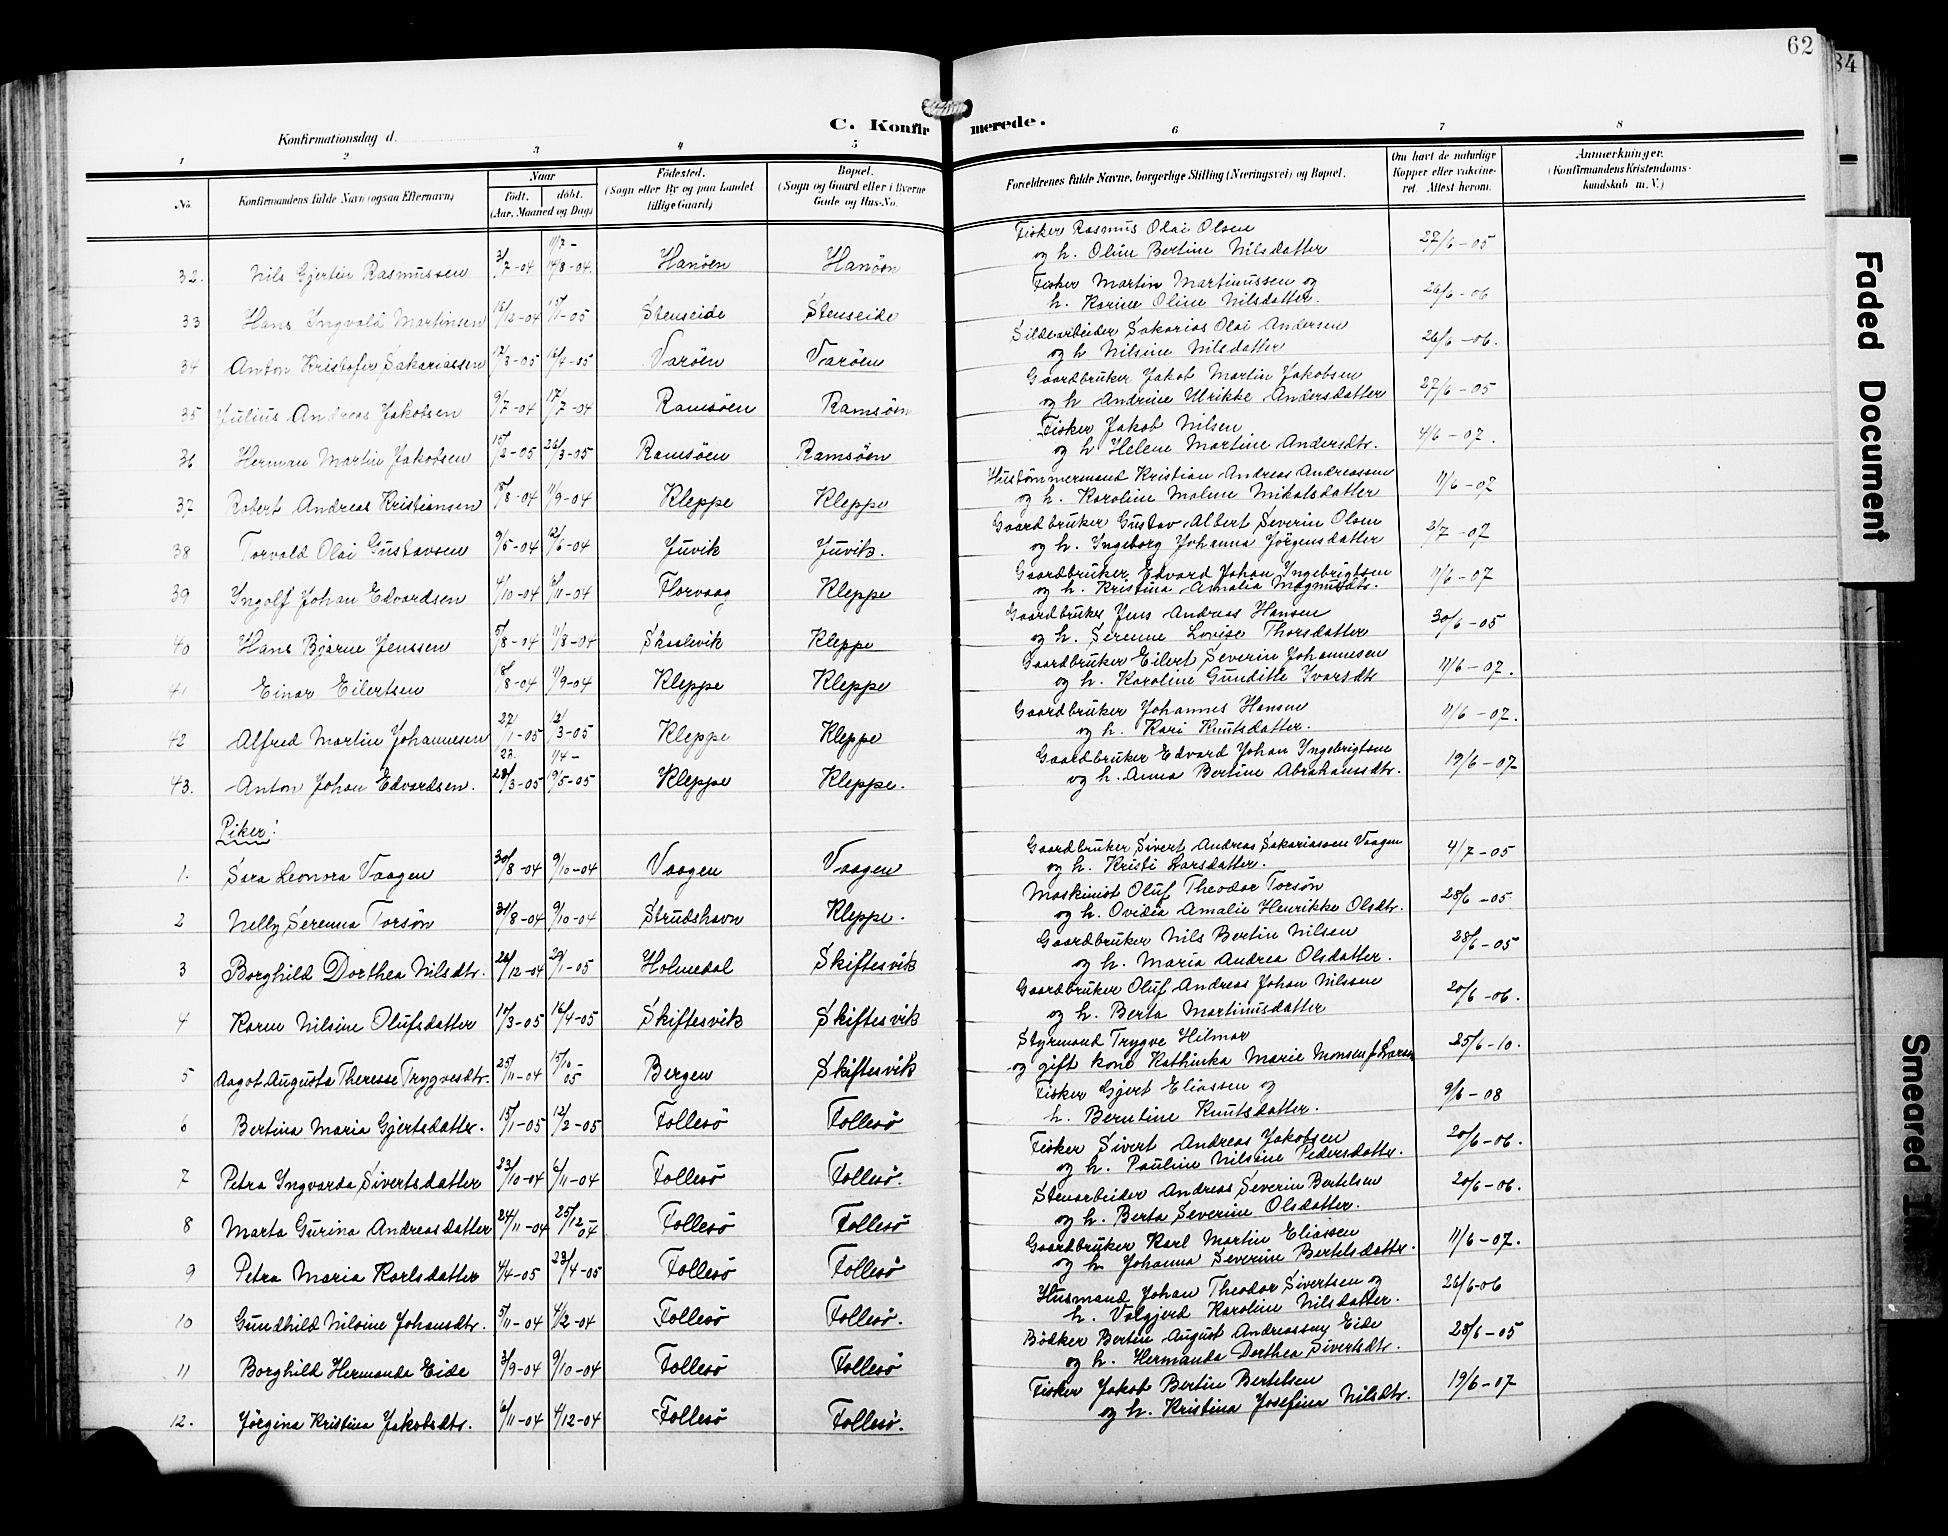 62
84
C. Konfirmerede.
Konfirmationsdag d.
1 2 3 4 5 6 7 8
No. Konfirmandens fulde Navn (ogsaa Efternavn) Naar født. døbt. (Aar, Maaned og Dag) Fødested. (Sogn eller By og paa Landet tillige Gaard) Bopæl. (Sogn og Gaard eller i Byerne Gade og Hus-No. Forældrenes fulde Navne, borgerlige Stilling (Næringsvei) og Bopæl. Om havt de naturlige Kopper eller vaccineret. Attest herom. Anmerkninger. (Konfirmandens Kristendomskundskab m. V.)
32. Nils Gjertin Rasmussen 3/7-04 11/7- 14/8-04. Hanöen Hanöen Fisker Rasmus Olai Olsen
og h. Oline Bertine Nilsdatter 27/6-05
33 Hans Ingvald Martinsen 16/12-04 15/1-05 Stenseide Stenseide Fisker Martin Martinussen og
h. Karine Oline Nilsdatter. 26/6-06
34 Anton Kristofer Sakariassen 17/3-05 16/4-05 Varöen Varöen Sildearbeider Sakarias Olai Andersen
og h Nilsine Nilsdatter 26/6-06.
35 Julius Andreas Jakobsen 9/7-04 17/7-04 Ramsöen Ramsöen Gaardbruker Jakob Martin Jakobsen
og h Andrine Ulrikke Andersdatter 27/6-05
36 Herman Martin Jakobsen 15/2-05 26/3-05 Ramsöen Ramsöen Fisker Jakob Nilsen
og h Helene Martine Andersdtr. 4/6-07.
37 Robert Andreas Kristiansen 18/8-04 11/9-04 Kleppe Kleppe Hustömmermand Kristian Andreas Andreassen
og h. Karoline Malene Mikalsdatter 11/6-07
38 Torvald Olai Gustavsen 9/5-04 12/6-04 Juvik Juvik. Gaardbruker Gustav Albert Severin Olsen
og h. Ingeborg Johanna Jörgensdatter 2/7-07
39 Ingolf Johan Edvardsen 4/10-04 6/11-04 Florvaag Kleppe Gaardbruker Edvard Johan Ingebrigtsen
og h. Kristina Amalia Magnusdtr. 11/6-07
40 Hans Bjarne Jenssen 5/8-04 11/8-04 Skaalevik Kleppe Gaardbruker Jens Andreas Hansen
og h. Serenne Lovise Thorsdatter 30/6-05
41 Einar Eilertsen 8/8-04 11/9-04 Kleppe Kleppe Gaardbruker Eilert Severin Johannesen
og h. Karoline Gunditte Ivarsdtr 11/6-07.
42 Alfred Martin Johannesen 27/1-05 12/3-05 Kleppe Kleppe Gaardbruker Johannes Hansen
og h. Kari Knutsdatter. 11/6-07.
43. Anton Johan Edvardsen. 23. 28/3-05 1/4- 19/5-05 Kleppe Kleppe. Gaardbruker Edvard Johan Ingebrigtsen
og h. Anna Bertine Abrahamsdtr. 19/6-07
Piker!
1. Sara Leonora Vaagen 30/8-04 9/10-04 Vaagen Vaagen Gaardbruker Sivert Andreas Sakariassen Vaagen
og h. Kristi Larsdatter. 4/7-05
2 Nelly Serenna Torsön 31/8-04 9/10-04 Strudshavn Kleppe. Maskinist Oluf Theodor Torsön
og h. Ovidia Amalie Henrikke Olsdtr. 28/6-05
3 Borghild Dorthea Nilsdtr. 26/12-04 29/1-05 Holmedal Skiftesvik Gaardbruker Nils Bertin Nilsen
og h. Maria Andrea Olsdatter. 28/6-05
4 Karen Nilsine Olufsdatter 10/3-05 16/4-05 Skiftesvik Skiftesvik Gaardbruker Oluf Andreas Johan Nilssen
og h. Berta Martinusdatter 20/6-06.
5 Aagot Augusta Therese Trygvesdtr. 25/11-04 15/10-05 Bergen Skiftesvik Styrmand Trygve Hilmar
og gift kone Kathinka Marie Monsen f. Larsen 25/6-10.
6 Bertina Maria Gjertsdatter. 15/1-05 12/2-05 Follesö Follesö Fisker Gjert Eliassen og
h. Berntine Knutsdatter. 9/6-08
7 Petra Ingvarda Sivertsdatter 23/10-04 6/11-04 Follesö Follesö. Fisker Sivert Andreas Jakobsen
og h. Pauline Nilsine Pedersdatter. 20/6-06.
8 Marta Gurina Andreasdatter 24/11-04 25/12-04 Follesö Follesö Stenarbeider Andreas Severin Bertelsen
og h. Berta Severine Olsdatter. 20/6-06.
9 Petra Maria Karlsdatter 4/4-05 23/4-05 Follesö Follesö Gaardbruker Karl Martin Eliassen
og h. Johanna Severine Bertelsdatter. 11/6-07.
10 Gundhild Nilsine Johansdtr. 5/11-04 4/12-04 Follesö Follesö. Husmand Johan Theodor Sivertsen og
h. Valgjerd Karoline Nilsdatter. 26/6-06
11 Borghild Hermanda Eide 3/9-04 9/10-04 Follesö Follesö Bödker Bertin August Andreassen Eide
og h. Hermanda Dorthea Sivertsdtr. 28/6-05
12. Jörgina Kristina Jakobsdtr. 6/11-04 4/12-04 Follesö Follesö. Fisker Jakob Bertin Bertelsen
og h. Kristina Josefina Nilsdtr. 19/6-07
Faded Document
Smeared